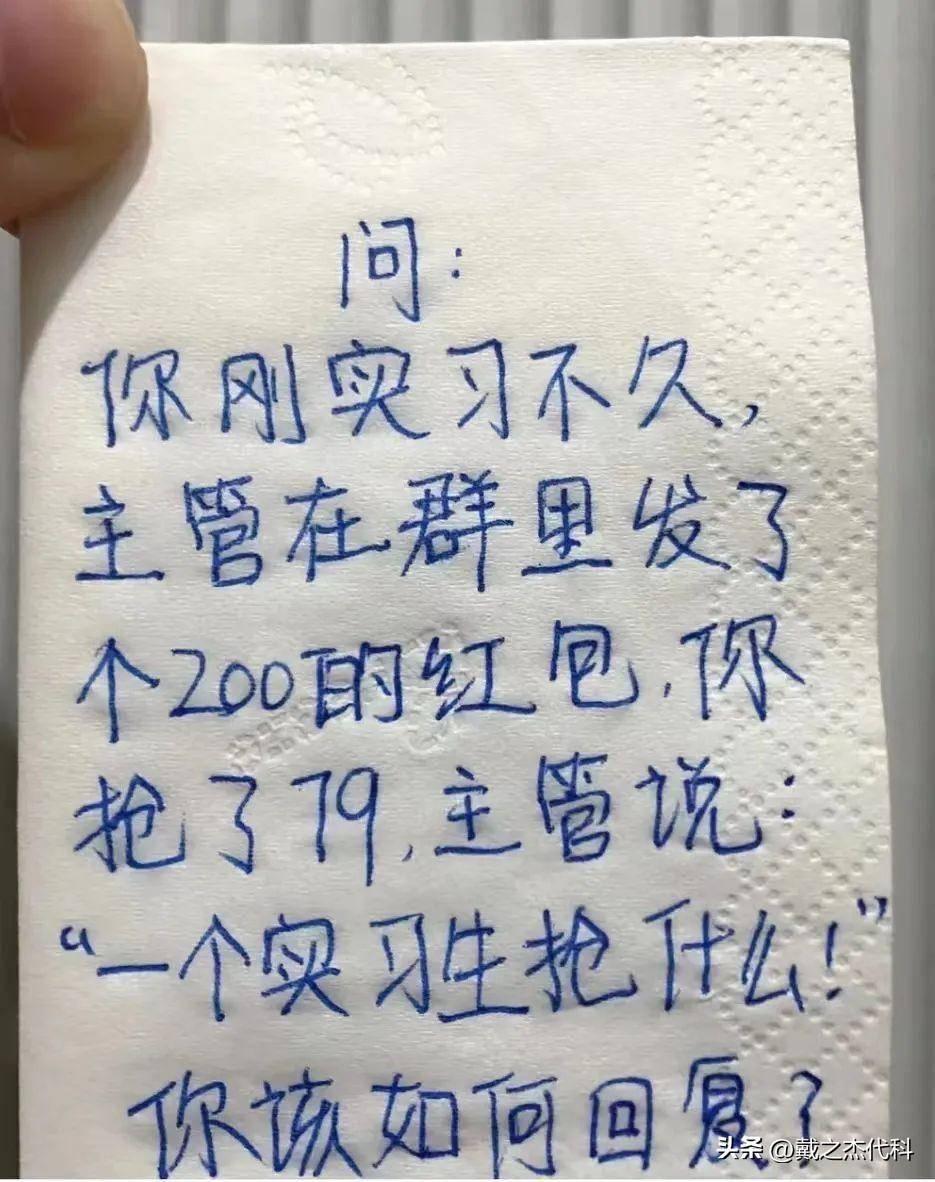 问:
你刚实习不久,
主管在群里发了
个200的红包,你
抢了79,主管说:
“一个实习生抢什么!”
你该如何回复?
头条 @戴之杰代科